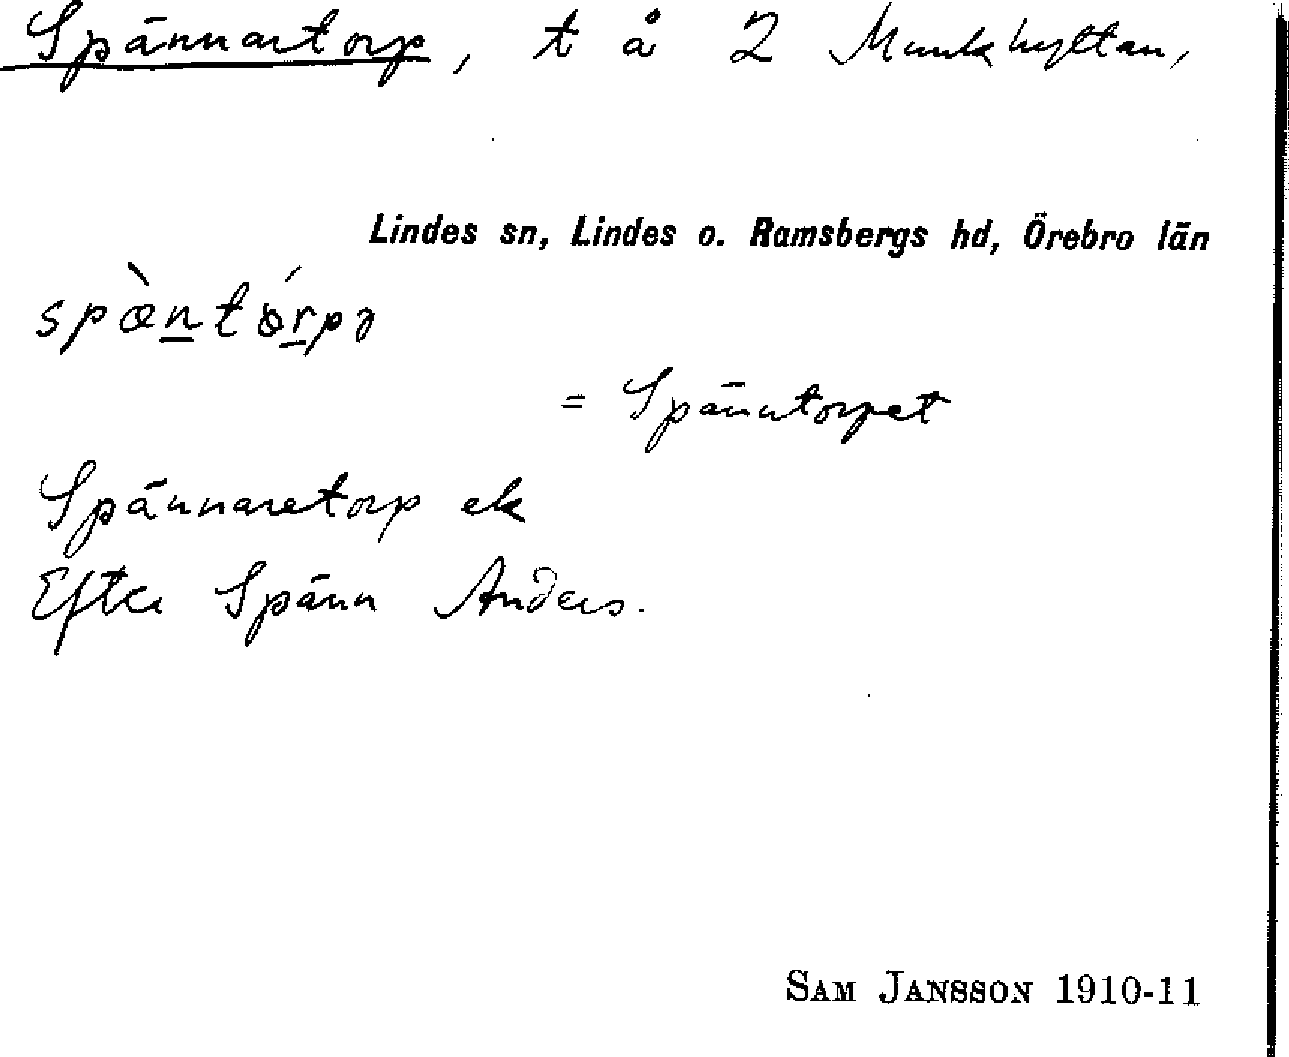 Spännartorp, t å 2 Munkhyttan,
Lindes sn, Lindes o. Ramsbergs hd, Örebro län
spæ̀ntórpə
= Spänntorpet
Spännaretorp ek
Efter Spänn Anders.
SAM JANSSON 1910-11